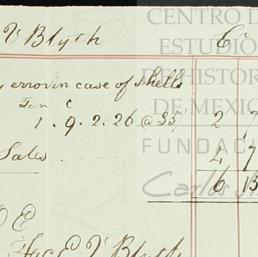 V Blyth Cr
y error in case of shells
Ton C
1. 9. 2. 26 @ 35/ 2 1
Sales .... 4 7
6 15
O E
V Blyth
CENTRO D
ESTUDIO
DE HISTOR
DE MEXIC
FUNDAC
Carlos